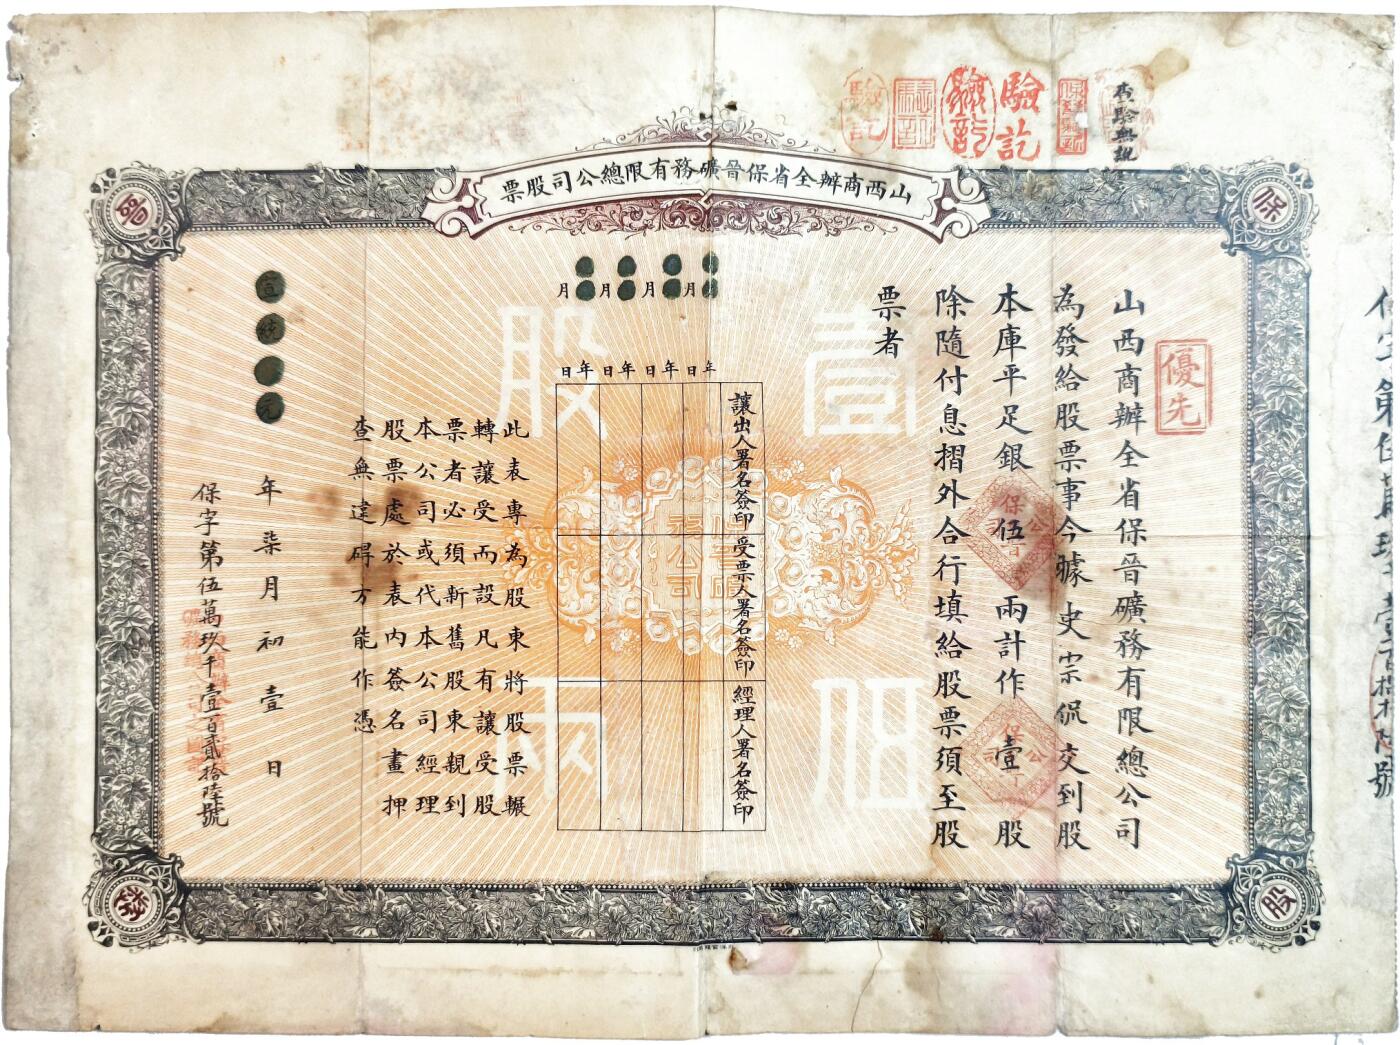 查驗無訛
驗訖
驗訖
山西商辦全省保晉礦務有限總公司股票
保
晉
股
優先
山西商辦全省保晉礦務有限總公司
為發給股票事今據史宗侃交到股
本庫平足銀伍兩計作壹股
除隨付息摺外合行填給股票須至股
票者
壹股
伍兩
年月日
年月日
年月日
年月日
讓出人署名簽印
受票人署名簽印
經理人署名簽印
此表專為股東將股票輾
轉讓受而設凡有讓受股
票者必須新舊股東親到
本公司或代本公司經理
股票處於表內簽名畫押
查無違碍方能作憑
宣統元年柒月初壹日
保字第伍萬玖千壹百貳拾陸號